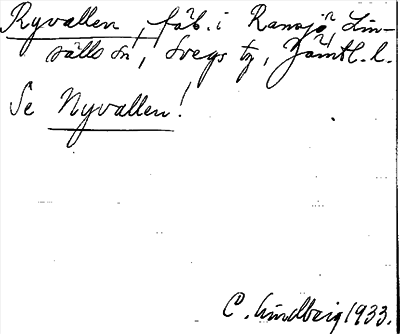 Ryvallen, fäb. i Ransjö, Lin-
sälls sn, Svegs tg, Jämtl. l.
Se Nyvallen!
C. Lindberg 1933.